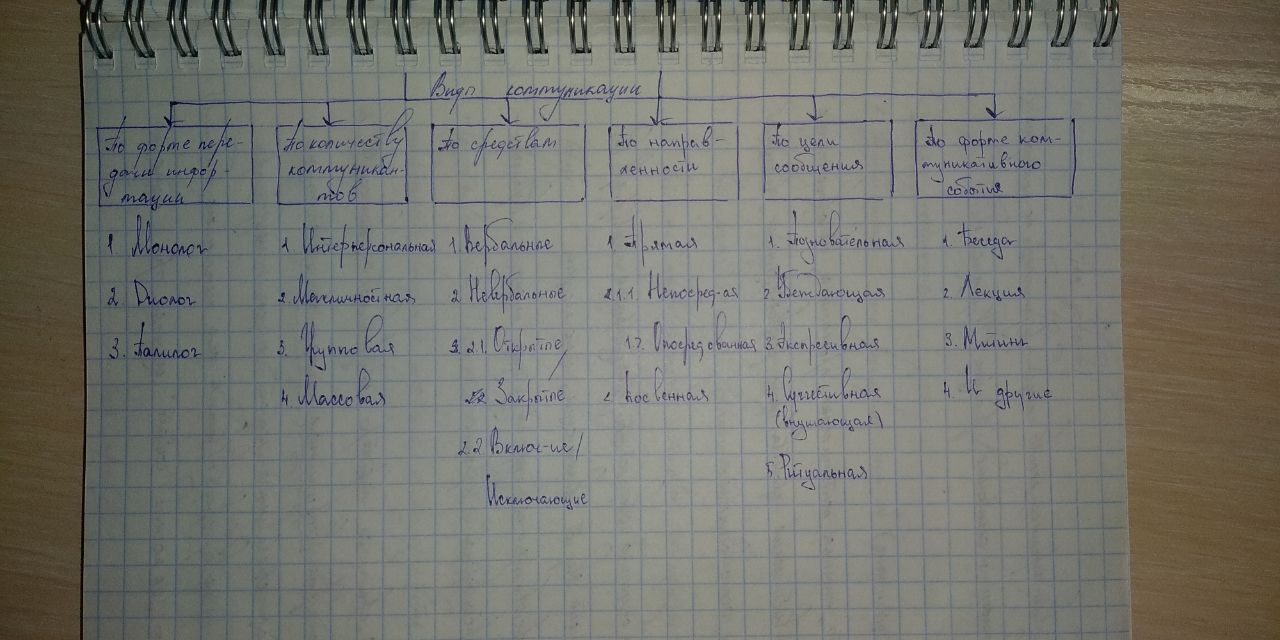 Виды коммуникации
По форме пере-
дачи инфор-
мации
1. Монолог
2. Диолог
3. Палилог
По количеству
коммуникан-
тов
1. Интерперсональная
2. Межличностная
3. Групповая
4. Массовая
По средствам
1. Вербальные
2. Невербальные
2.1. Открытые/
Закрытые
2.2 Включ-ие/
Исключающие
По направ-
ленности
1 Прямая
1.1. Непосред-ая
1.2. Опосредованная
2 Косвенная
По цели
сообщения
1. Позновательная
2. Убеждающая
3. Экспресивная
4. Суггестивная
(внушающая)
5. Ритуальная
По форме ком-
муникативного
события
1. Беседа
2. Лекция
3. Митинг
4. И другие